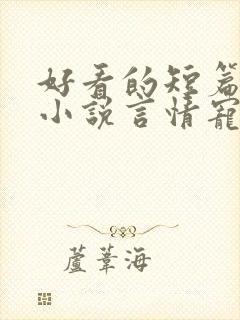 好看的短篇
小说言情寵
蘆葦海